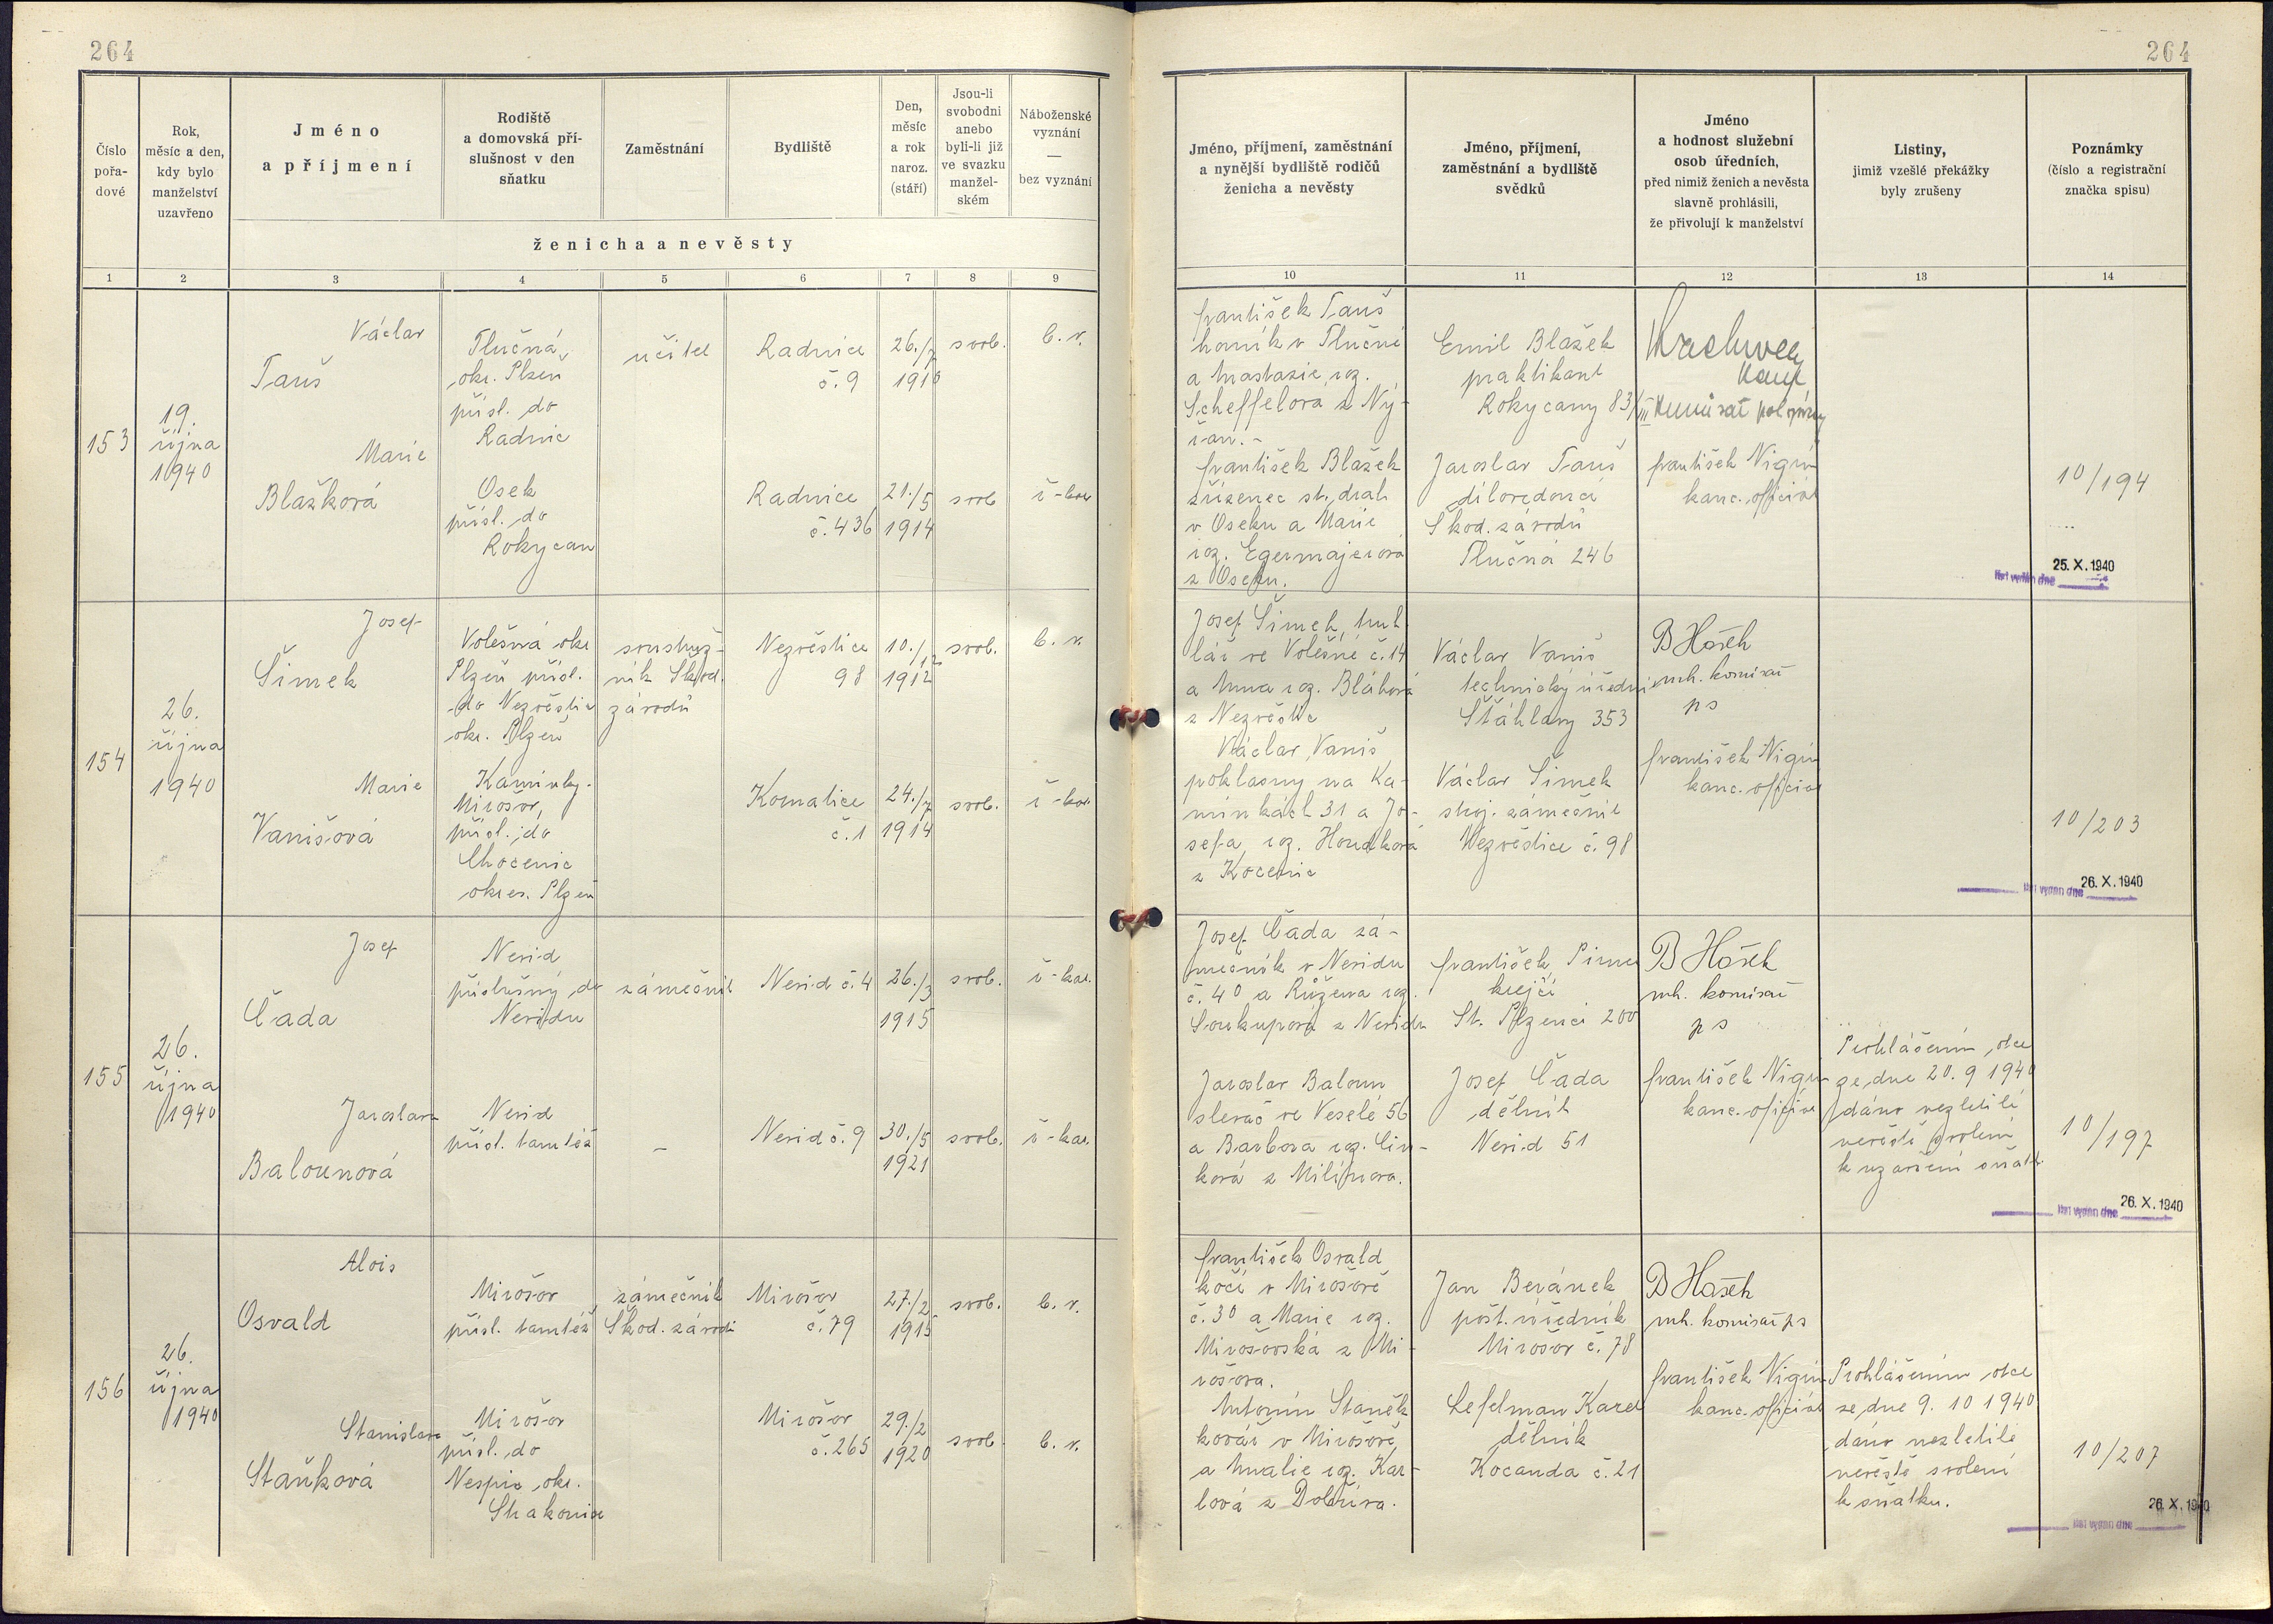 264
264
Číslo
pořa-
dové
Rok,
měsíc a den,
kdy bylo
manželství
uzavřeno
Jméno
a příjmení
Rodiště
a domovská pří-
slušnost v den
sňatku
Zaměstnání
Bydliště
Den,
měsíc
a rok
naroz.
(stáří)
Jsou-li
svobodni
anebo
byli-li již
ve svazku
manžel-
ském
Náboženské
vyznání
—
bez vyznání
ženicha a nevěsty
Jméno, příjmení, zaměstnání
a nynější bydliště rodičů
ženicha a nevěsty
Jméno, příjmení,
zaměstnání a bydliště
svědků
Jméno
a hodnost služební
osob úředních,
před nimiž ženich a nevěsta
slavně prohlásili,
že přivolují k manželství
Listiny,
jimiž vzešlé překážky
byly zrušeny
Poznámky
(číslo a registrační
značka spisu)
1 2 3 4 5 6 7 8 9 10 11 12 13 14
153
19.
října
1940
Václav
Tauš
Tlučná,
okr. Plzeň
přísl. do
Radnic
učitel
Radnice
č. 9
26./7
1910
svob.
b. v.
Marie
Blažková
Osek
přísl. do
Rokycan
Radnice
č. 436
21./5
1914
svob
ř-kat
František Tauš
horník v Tlučné
a Anastazie roz.
Scheffelová z Ný-
řan.-
František Blažek
zřízenec st. drah
v Oseku a Marie
roz. Egermajerová
z Oseku.
Emil Blažek
praktikant
Rokycany 83/III
Jaroslav Tauš
dílovedoucí
Škod. závodů
Tlučná 246
František Nigrin
kanc. oficiál
10/194
25. X. 1940
list vydán dne
154
26.
října
1940
Josef
Šimek
Volešná okr
Plzeň přísl.
do Nezvěstic
okr. Plzeň
soustruž-
ník Škod.
závodů
Nezvěstice
98
10./12
1912
svob.
b. v.
Marie
Vanišová
Kamínky-
Mirošov,
přísl. do
Chocenic
okres. Plzeň
Komatice
č. 1
24./7
1914
svob.
ř-kat
Josef Šimek, truh
lář ve Volešné č. 14
a Anna roz. Bláhová
z Nezvěstic
Václav Vaniš
poklasný na Ka-
mínkách 31 a Jo-
sefa, roz. Houdková
z Kocenic
Václav Vaniš
technický úředník
Šťáhlavy 353
Václav Šimek
stroj. zámečník
Nezvěstice č. 98
B Hošek
mh. komisař
ps
František Nigrin
kanc. oficiál
10/203
26. X. 1940
list vydán dne
155
26.
října
1940
Josef
Čada
Nevid
příslušný do
Nevidu
zámečník
Nevid č. 4
26./3
1915
svob.
ř-kat.
Jaroslava
Balounová
Nevid
přísl. tamtéž
–
Nevid č. 9
30./5
1921
svob.
ř-kat.
Josef Čada zá-
mečník v Nevidu
č. 40 a Růžena roz.
Soukupová z Nevidu
Jaroslav Baloun
slevač ve Veselé 56
a Barbora roz. Cin-
ková z Milínova.
František
krejčí
St. Plzenci 200
Josef Čada
dělník
Nevid 51
B Hošek
mh. komisař
ps
František Nigrin
kanc. oficiál
Prohlášením otce
ze dne 20. 9 1940
dáno nezletilé
nevěstě svolení
k uzavření sňatk
10/197
26. X. 1940
list vydán dne
156
26.
října
1940
Alois
Osvald
Mirošov
přísl. tamtéž
zámečník
Škod. závodů
Mirošov
č. 79
27./2
1915
svob.
b. v.
Stanislava
Staňková
Mirošov
přísl. do
Nespic okr.
Strakonice
Mirošov
č. 265
29./2
1920
svob.
b. v.
František Osvald
kočí v Mirošově
č. 30 a Marie roz.
Mirošovská z Mi-
rošova.
Antonín Staněk
kovář v Mirošově
a Amalie roz. Kar-
lová z Dobříva.
Jan Beránek
pošt. úředník
Mirošov č. 78
Lefelman Karel
dělník
Kocanda č. 21
B Hošek
mh. komisař ps
František Nigrin
kanc. oficiál
Prohlášením otce
ze dne 9. 10 1940
dáno nezletilé
nevěstě svolení
k sňatku.
10/207
26. X. 1940
list vydán dne